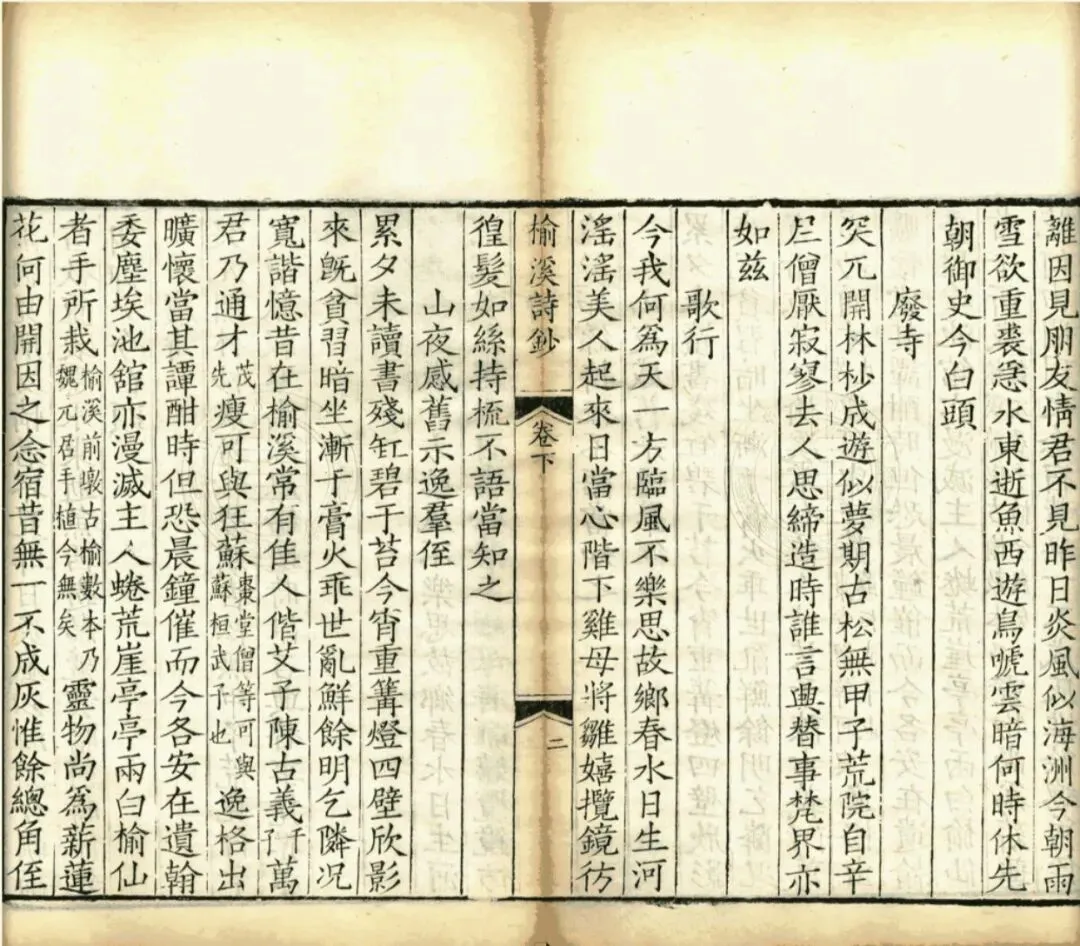 離因見朋友情君不見昨日炎風似海洲今朝雨
雪欲重裘急水東逝魚西遊鳥號雲暗何時休先
朝御史今白頭
廢寺
突兀開林杪成遊似夢期古松無甲子荒院自辛
𡰱僧厭寂寥去人思締造時誰言興替事梵界亦
如兹
歌行
今我何爲天一方臨風不樂思故鄉春水日生河
滛滛美人起來日當心階下雞母將雛嬉攬鏡彷
榆溪詩鈔
卷下
二
徨髮如絲持梳不語當知之
山夜感舊示逸羣侄
累夕未讀書殘缸碧于苔今宵重篝燈四壁欣影
來旣貧習暗坐漸于膏火乖世亂鮮餘明乞隣況
寬諧憶昔在榆溪常有佳人偕艾子陳古義千子萬
君乃通才茂先瘦可與狂蘇棗堂僧等可與蘇桓武予也逸格出
曠懷當其譚酣時但恐晨鐘催而今各安在遺翰
委塵埃池舘亦漫滅主人蜷荒崖亭亭兩白榆仙
者手所栽榆溪前墩古榆數本乃魏元居手植今無矣靈物尚爲薪蓮
花何由開因之念宿昔無一不成灰惟餘總角侄